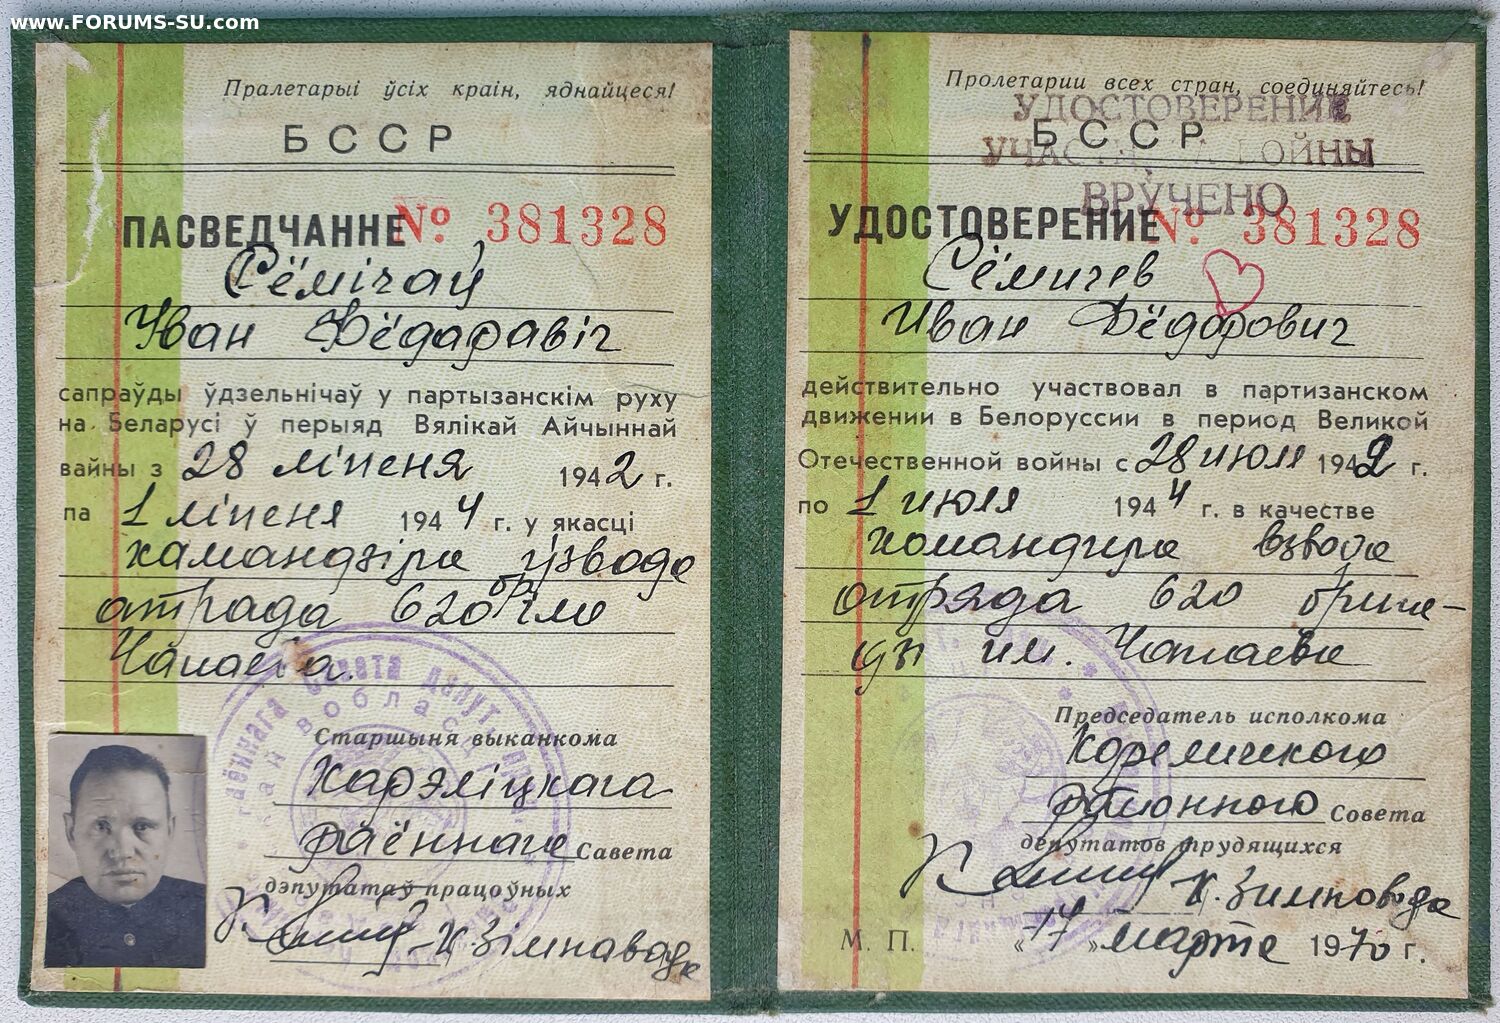 www.FORUMS-SU.com
Пралетарыі ўсіх краін, яднайцеся!
БССР
ПАСВЕДЧАННЕ № 381328
Сёмічаў
Іван Фёдаравіч
сапраўды ўдзельнічаў у партызанскім руху
на Беларусі ў перыяд Вялікай Айчыннай
вайны з 28 ліпеня 1942 г.
па 1 ліпеня 1944 г. у якасці
камандзіра ўзвода
атрада 620 бр. імя
Чапаева.
Старшыня выканкома
Карэліцкага
раённага Савета
дэпутатаў працоўных
К. Зімнавода
Пролетарии всех стран, соединяйтесь!
УДОСТОВЕРЕНИЕ
БССР
ВОЙНЫ
ВРУЧЕНО
УДОСТОВЕРЕНИЕ № 381328
Сёмичев
Иван Фёдорович
действительно участвовал в партизанском
движении в Белоруссии в период Великой
Отечественной войны с 28 июля 1942 г.
по 1 июля 1944 г. в качестве
командира взвода
отряда 620 брига-
ды им. Чапаева
Председатель исполкома
Кореличского
районного Совета
депутатов трудящихся
К. Зимновода
М. П. «17» марта 1970 г.